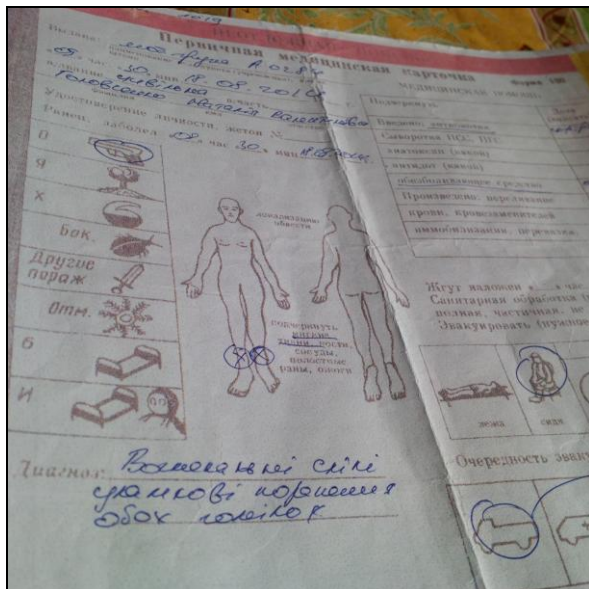 Первичная медицинская карточка
Форма 100
Выдана: мед. группа А 0284
09 час 30 мин 18.08.2014
Головченко Наталія Валентинівна
Удостоверение личности, жетон №
Ранен, заболел 09 час 30 мин
О
Я
Х
Бак.
Другие пораж
Отм.
Б
И
локализацию обвести
подчеркнуть
мягкие
ткани, кости,
сосуды,
полостные
раны, ожоги
Подчеркнуть
Введено: антитоксин
Сыворотка ПСС, ПГС
анатоксин (какой)
антидот (какой)
обезболивающее средство
Произведено: переливание
крови, кровезаменителей
иммобилизация, перевязка
Жгут наложен в час.
Санитарная обработка
полная, частичная, не
Эвакуировать
лежа
сидя
Диагноз: Вогнепальні сліпі
уламкові поранення
обох гомілок
Очередность эваку